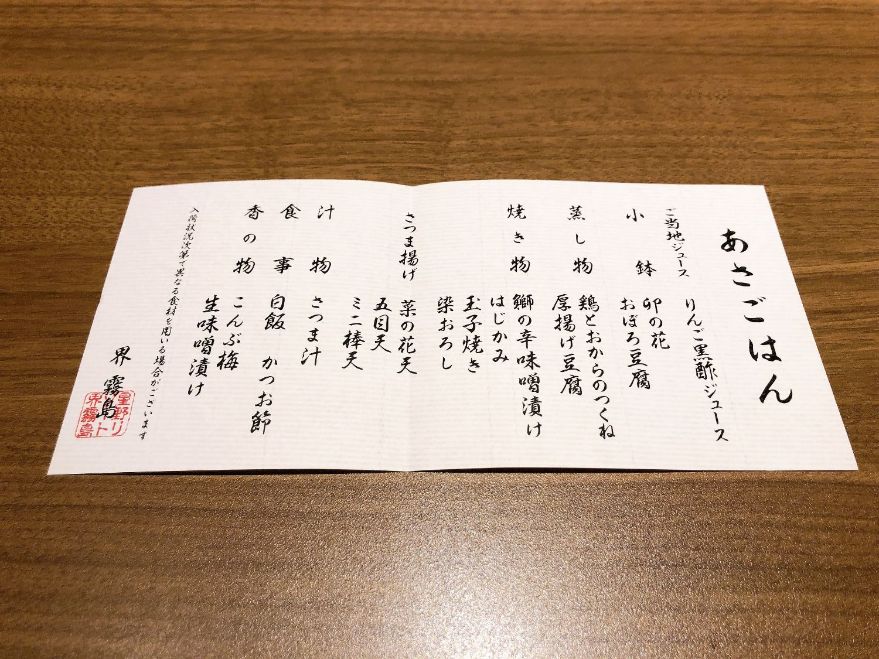 あさごはん
ご当地ジュース
りんご黒酢ジュース
小鉢
卯の花
おぼろ豆腐
蒸し物
鶏とおからのつくね
厚揚げ豆腐
焼き物
鰤の辛味噌漬け
はじかみ
玉子焼き
染おろし
さつま揚げ
菜の花天
五目天
ミニ棒天
汁物
さつま汁
食事
白飯 かつお節
香の物
こんぶ梅
生味噌漬け
入荷状況次第で異なる食材を用いる場合がございます
界 霧島
星野リ
ゾート
界霧島